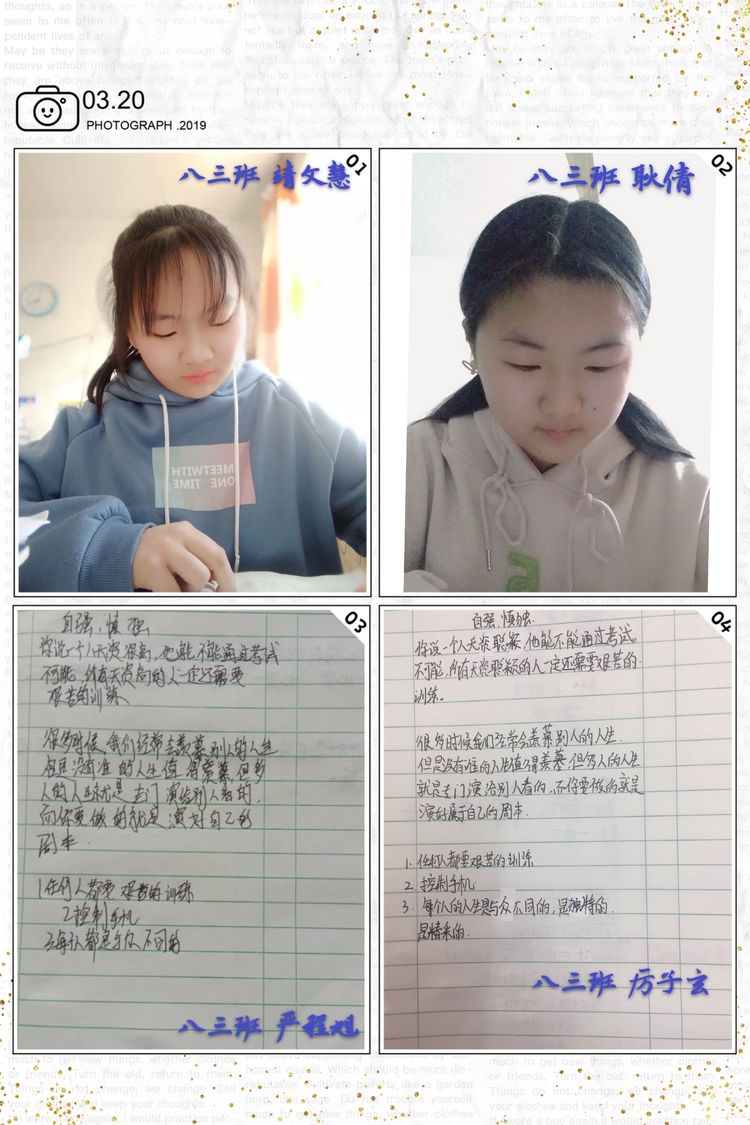 03.20
PHOTOGRAPH .2019
01
八三班 靖文慧
02
八三班 耿倩
MEETWITH
ONE TIME
03
自强、慎独
你说一个人天资很高,他能不能通过考试
不可能,所有天资高的人一定还需要
艰苦的训练
很多时候我们经常会羡慕别人的人生
但是没有谁的人生值得羡慕,但多
人的人生就是专门演给别人看的,
而你要做的就是演好自己的
周本.
1.任何人都要艰苦的训练
2.控制手机
3.每个人都是与众不同的
八三班 严程旭
04
自强、慎独.
你说一个人天资聪颖,他能不能通过考试。
不可能,所有天资聪颖的人一定还需要艰苦的
训练。
很多时候我们经常会羡慕别人的人生.
但是没有谁的人生值得羡慕 但多人的人生
就是专门演给别人看的,而你要做的就是
演好属于自己的周本.
1. 任何人都要艰苦的训练
2. 控制手机
3. 每个人的人生是与众不同的,是独特的.
是精采的.
八三班 厉子玄